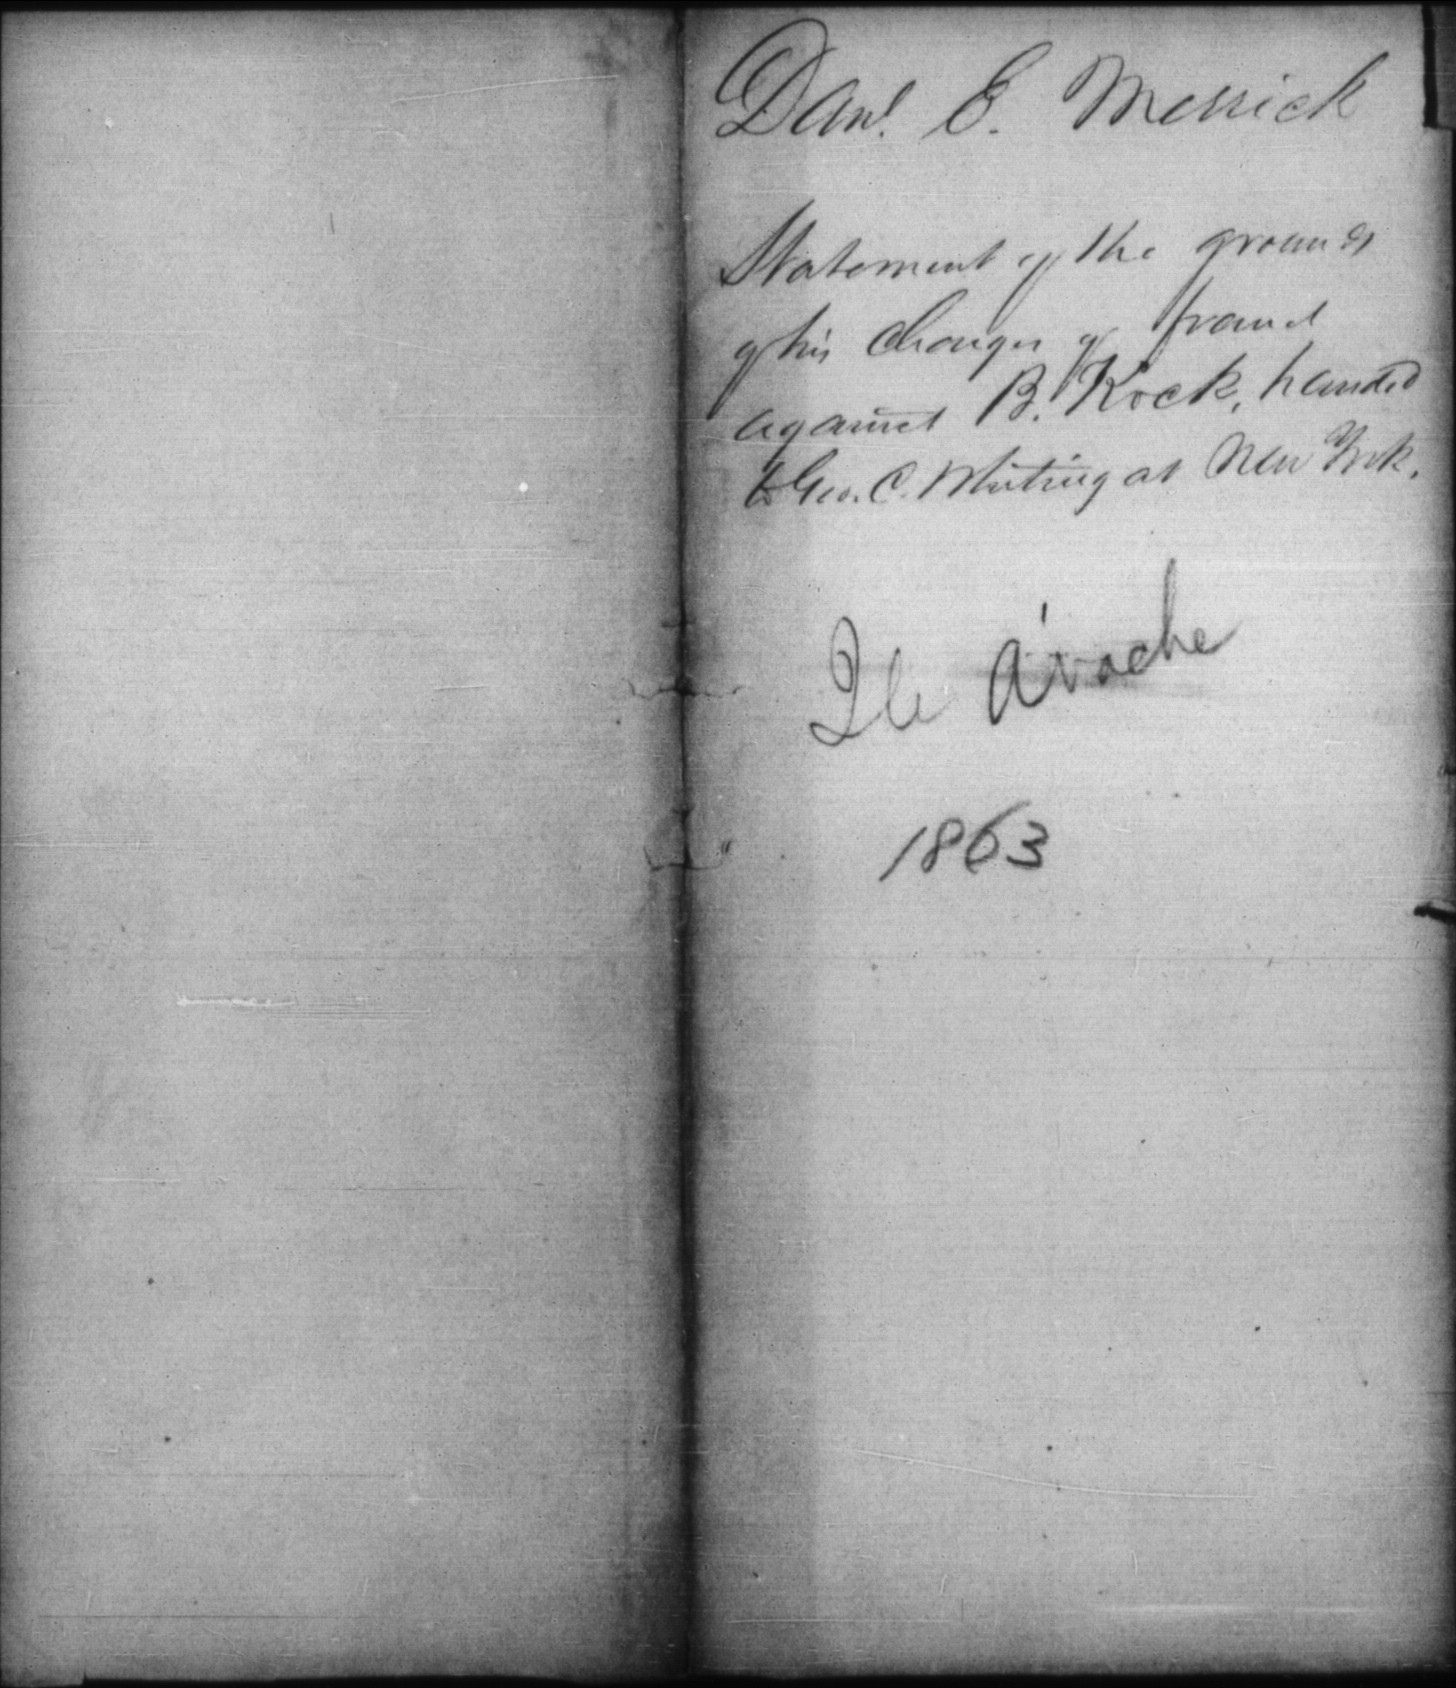 Danl. E. Messick
Statement of the grounds
of his charges of fraud
against B. Kock, handed
to Geo. C. Whiting at New York.
Ile A'vache
1863